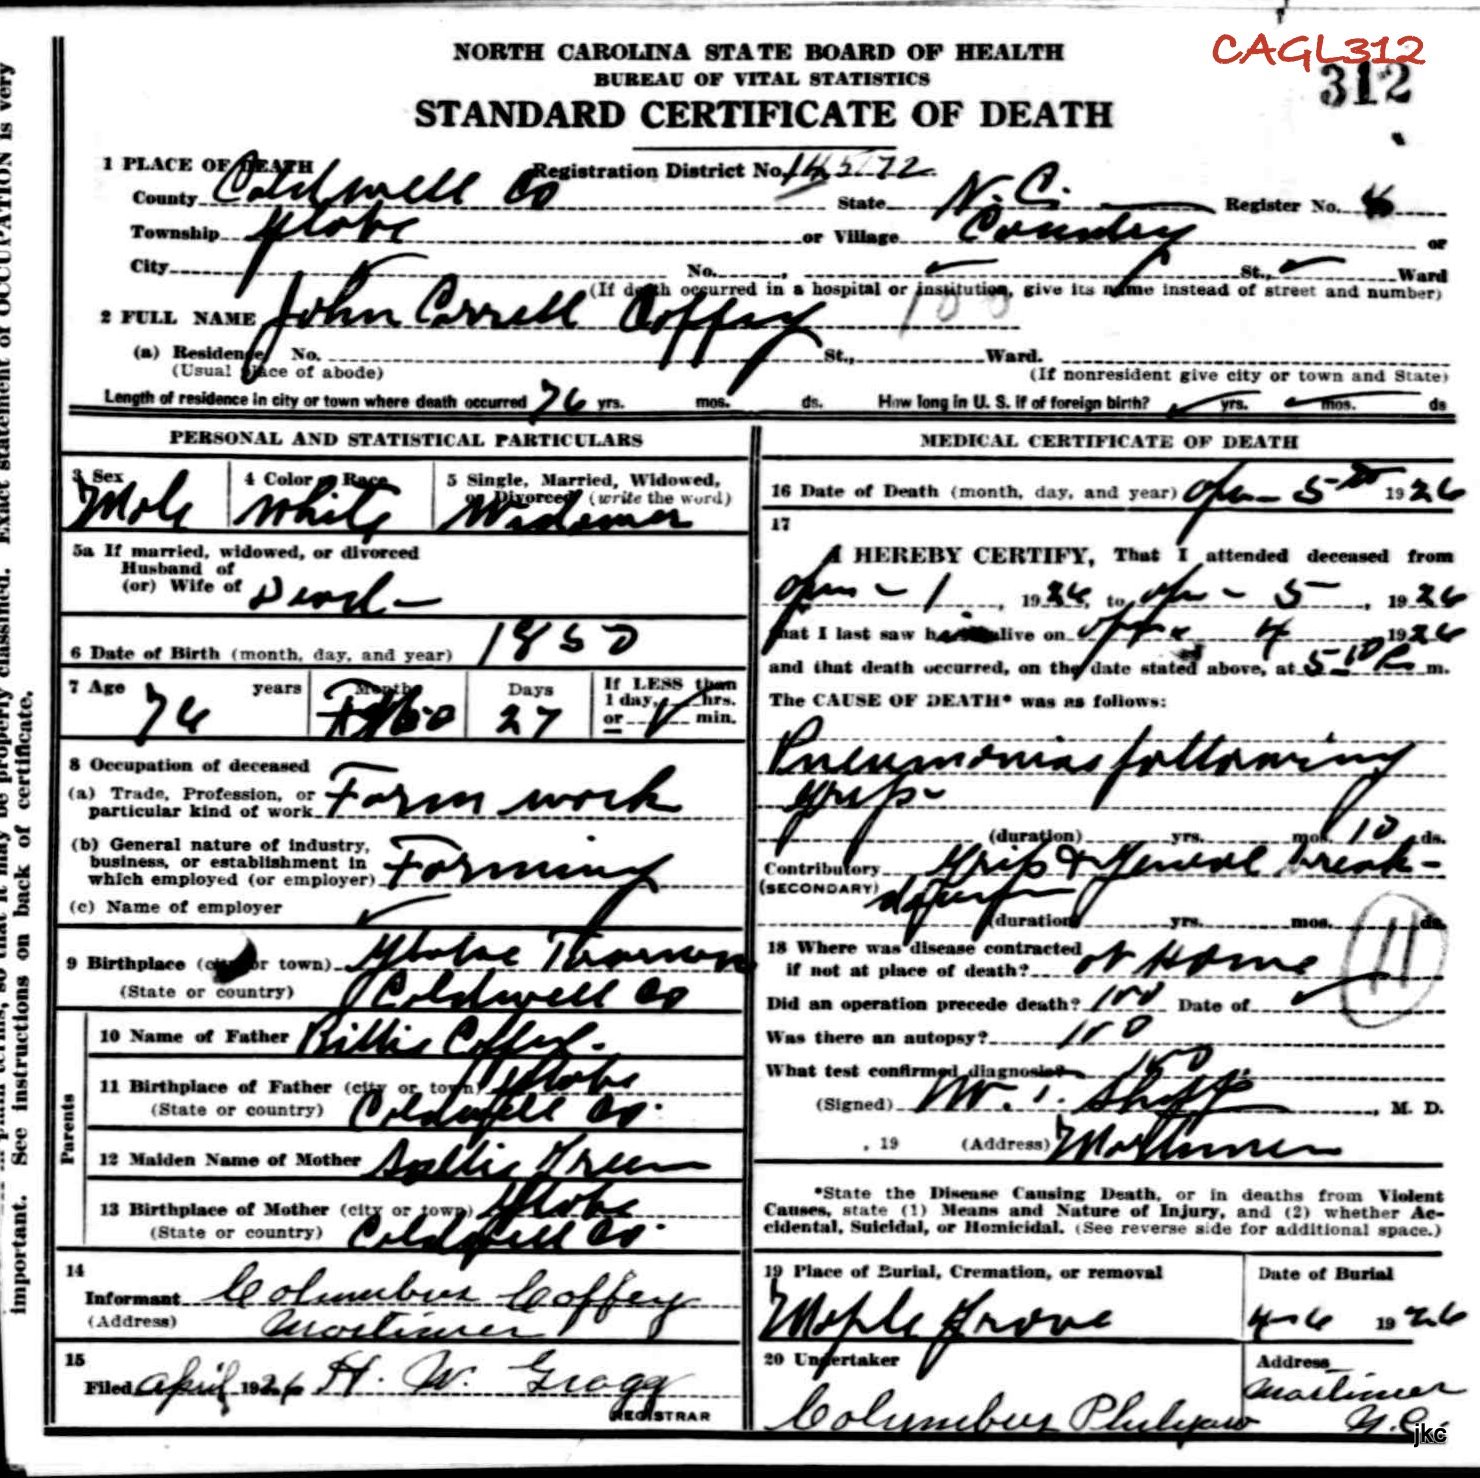 CAGL312
312
NORTH CAROLINA STATE BOARD OF HEALTH
BUREAU OF VITAL STATISTICS
STANDARD CERTIFICATE OF DEATH
1 PLACE OF DEATH Registration District No. 14572
County Caldwell Co State N.C. Register No. 4
Township Globe or Village Country or
City No. , St., Ward
(If death occurred in a hospital or institution, give its name instead of street and number)
2 FULL NAME John Carrell Coffey 100
(a) Residence No. St., Ward.
(Usual place of abode) (If nonresident give city or town and State)
Length of residence in city or town where death occurred 76 yrs. mos. ds. How long in U. S. if of foreign birth? yrs. mos. ds
PERSONAL AND STATISTICAL PARTICULARS
3 Sex 4 Color or Race 5 Single, Married, Widowed,
or Divorced (write the word)
Male White Widower
5a If married, widowed, or divorced
Husband of
(or) Wife of Dead
6 Date of Birth (month, day, and year) 1850
7 Age years Months Days If LESS than
1 day, hrs.
76 27 or min.
8 Occupation of deceased
(a) Trade, Profession, or
particular kind of work Farm work
(b) General nature of industry,
business, or establishment in
which employed (or employer) Farming
(c) Name of employer
9 Birthplace (city or town) Globe
(State or country) Caldwell Co
Parents
10 Name of Father Coffey
11 Birthplace of Father (city or town) Globe
(State or country) Caldwell Co.
12 Maiden Name of Mother Sallie Green
13 Birthplace of Mother (city or town) Globe
(State or country) Caldwell Co.
14
Informant Columbus Coffey
(Address) Mortimer
15
Filed April 1926 H. W. Gragg
REGISTRAR
MEDICAL CERTIFICATE OF DEATH
16 Date of Death (month, day, and year) Apr 5th 1926
17
I HEREBY CERTIFY, That I attended deceased from
Apr 1, 1926, to Apr 5, 1926
that I last saw him alive on Apr 4 1926
and that death occurred, on the date stated above, at 5 10 P m.
The CAUSE OF DEATH* was as follows:
Pneumonia following
grip
(duration) yrs. mos. 10 ds.
Contributory Grip & General break-
(SECONDARY) down
(duration) yrs. mos. ds.
11
18 Where was disease contracted
if not at place of death? at Home
Did an operation precede death? no Date of
Was there an autopsy? no
What test confirmed diagnosis? no
(Signed) , M. D.
, 19 (Address) Mortimer
*State the Disease Causing Death, or in deaths from Violent
Causes, state (1) Means and Nature of Injury, and (2) whether Ac-
cidental, Suicidal, or Homicidal. (See reverse side for additional space.)
19 Place of Burial, Cremation, or removal Date of Burial
Maple Grove 4-6 1926
20 Undertaker Address
Columbus Mortimer
N.C.
jkc
important. See instructions on back of certificate.
Exact statement of OCCUPATION is very